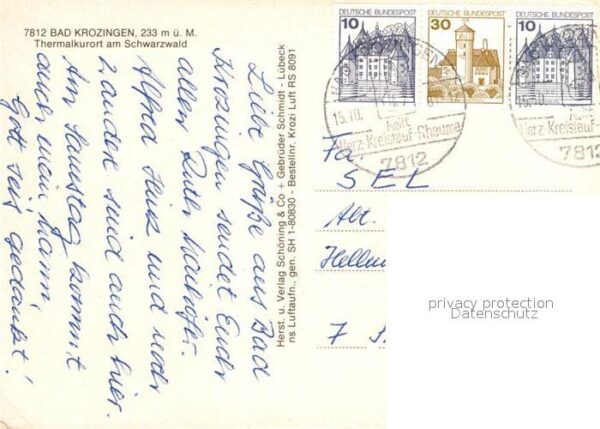 7812 BAD KROZINGEN, 233 m ü. M.
Thermalkurort am Schwarzwald
Liebe Grüße aus Bad
Krozingen sendet Euch
allen Eure
Alfred Hinz und
2 andere sind auch hier.
Am Samstag kommt
auch mein Mann
Gott sei's gedankt!
Herst. u. Verlag Schöning & Co + Gebrüder Schmidt - Lübeck
ns Luftaufn., gen. SH 1-80830 - Bestellnr. Krozi Luft RS 8091
DEUTSCHE BUNDESPOST
10
DEUTSCHE BUNDESPOST
30
DEUTSCHE BUNDESPOST
10
15.10.
heilt
Herz Kreislauf Rheuma
7812
15.10.
Herz Kreislauf
7812
Fa.
SEL
Abt.
7
privacy protection
Datenschutz